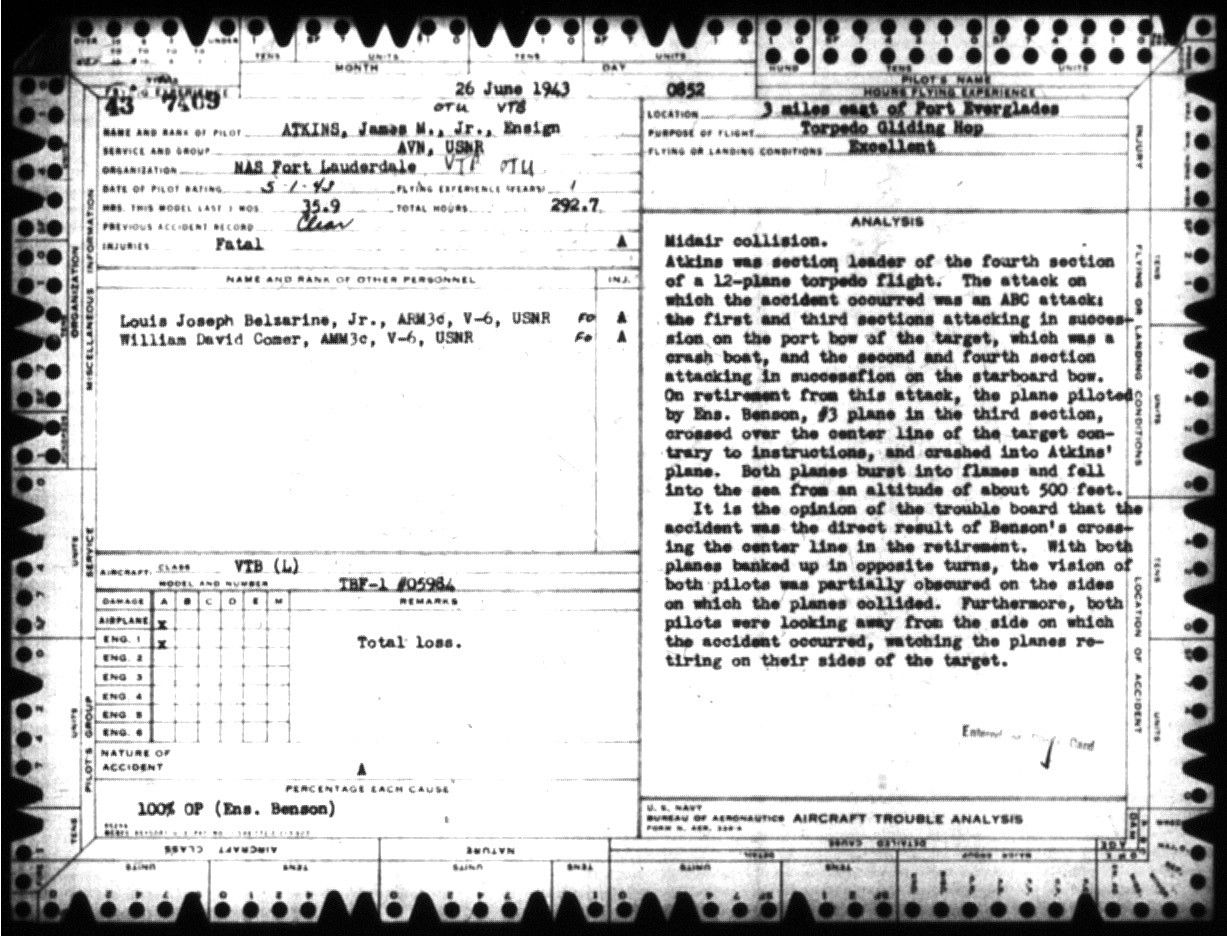 OVER UNDER TENS UNITS TENS UNITS HUND TENS UNITS
MONTH DAY PILOT'S NAME
HOURS FLYING EXPERIENCE
43 7409 26 June 1943 0852
OTU VTB
NAME AND RANK OF PILOT ATKINS, James M., Jr., Ensign
SERVICE AND GROUP AVN, USNR
ORGANIZATION NAS Fort Lauderdale VTB OTU
DATE OF PILOT RATING 5-1-43 FLYING EXPERIENCE (YEARS) 1
HRS. THIS MODEL LAST 3 MOS. 35.9 TOTAL HOURS 292.7
PREVIOUS ACCIDENT RECORD Clear
INJURIES Fatal A
NAME AND RANK OF OTHER PERSONNEL INJ.
Louis Joseph Belsarine, Jr., ARM3c, V-6, USNR FO A
William David Comer, AMM3c, V-6, USNR FO A
AIRCRAFT: CLASS VTB (L)
MODEL AND NUMBER TBF-1 #05984
DAMAGE A B C D E M REMARKS
AIRPLANE x
ENG. 1 x Total loss.
ENG. 2
ENG. 3
ENG. 4
ENG. 5
ENG. 6
NATURE OF
ACCIDENT A
PERCENTAGE EACH CAUSE
100% OP (Ens. Benson)
LOCATION 3 miles east of Port Everglades
PURPOSE OF FLIGHT Torpedo Gliding Hop
FLYING OR LANDING CONDITIONS Excellent
ANALYSIS
Midair collision.
Atkins was section leader of the fourth section
of a 12-plane torpedo flight. The attack on
which the accident occurred was an ABC attack:
the first and third sections attacking in succes-
sion on the port bow of the target, which was a
crash boat, and the second and fourth section
attacking in successfion on the starboard bow.
On retirement from this attack, the plane piloted
by Ens. Benson, #3 plane in the third section,
crossed over the center line of the target con-
trary to instructions, and crashed into Atkins'
plane. Both planes burst into flames and fell
into the sea from an altitude of about 500 feet.
It is the opinion of the trouble board that the
accident was the direct result of Benson's cross-
ing the center line in the retirement. With both
planes banked up in opposite turns, the vision of
both pilots was partially obscured on the sides
on which the planes collided. Furthermore, both
pilots were looking away from the side on which
the accident occurred, watching the planes re-
tiring on their sides of the target.
Entered Card
U. S. NAVY
BUREAU OF AERONAUTICS AIRCRAFT TROUBLE ANALYSIS
FORM N. AER.
ORGANIZATION
MISCELLANEOUS INFORMATION
SERVICE
PILOT'S GROUP
UNITS
UNITS
TENS
INJURY
FLYING OR LANDING CONDITIONS
LOCATION OF ACCIDENT
TENS
UNITS
TENS
UNITS
AIRCRAFT CLASS NATURE DETAILED CAUSE
UNITS TENS UNITS TENS DETAIL MAJOR GROUP